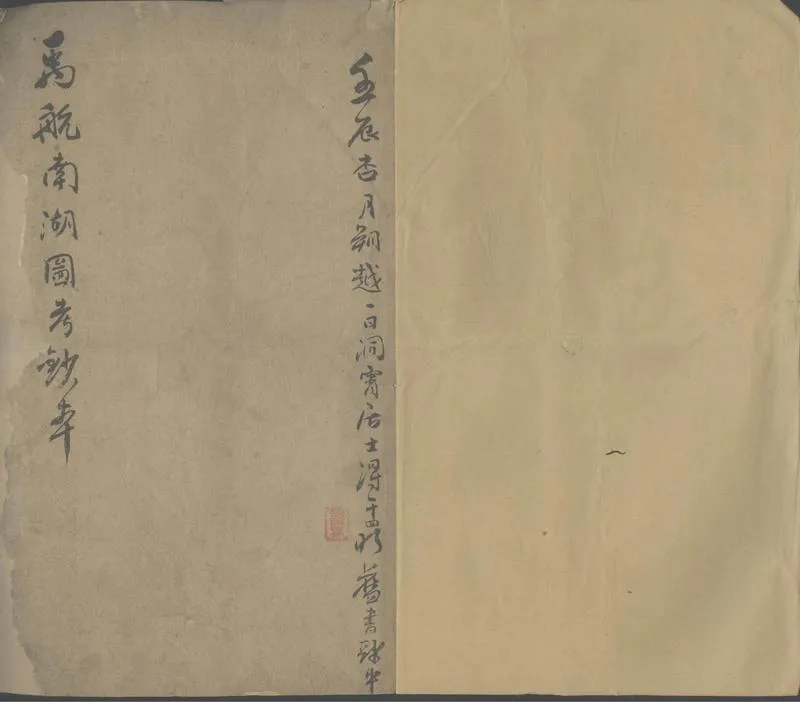 壬辰杏月朔越一日洞霄居士得于舊書肆中
禹航南湖圖考鈔本